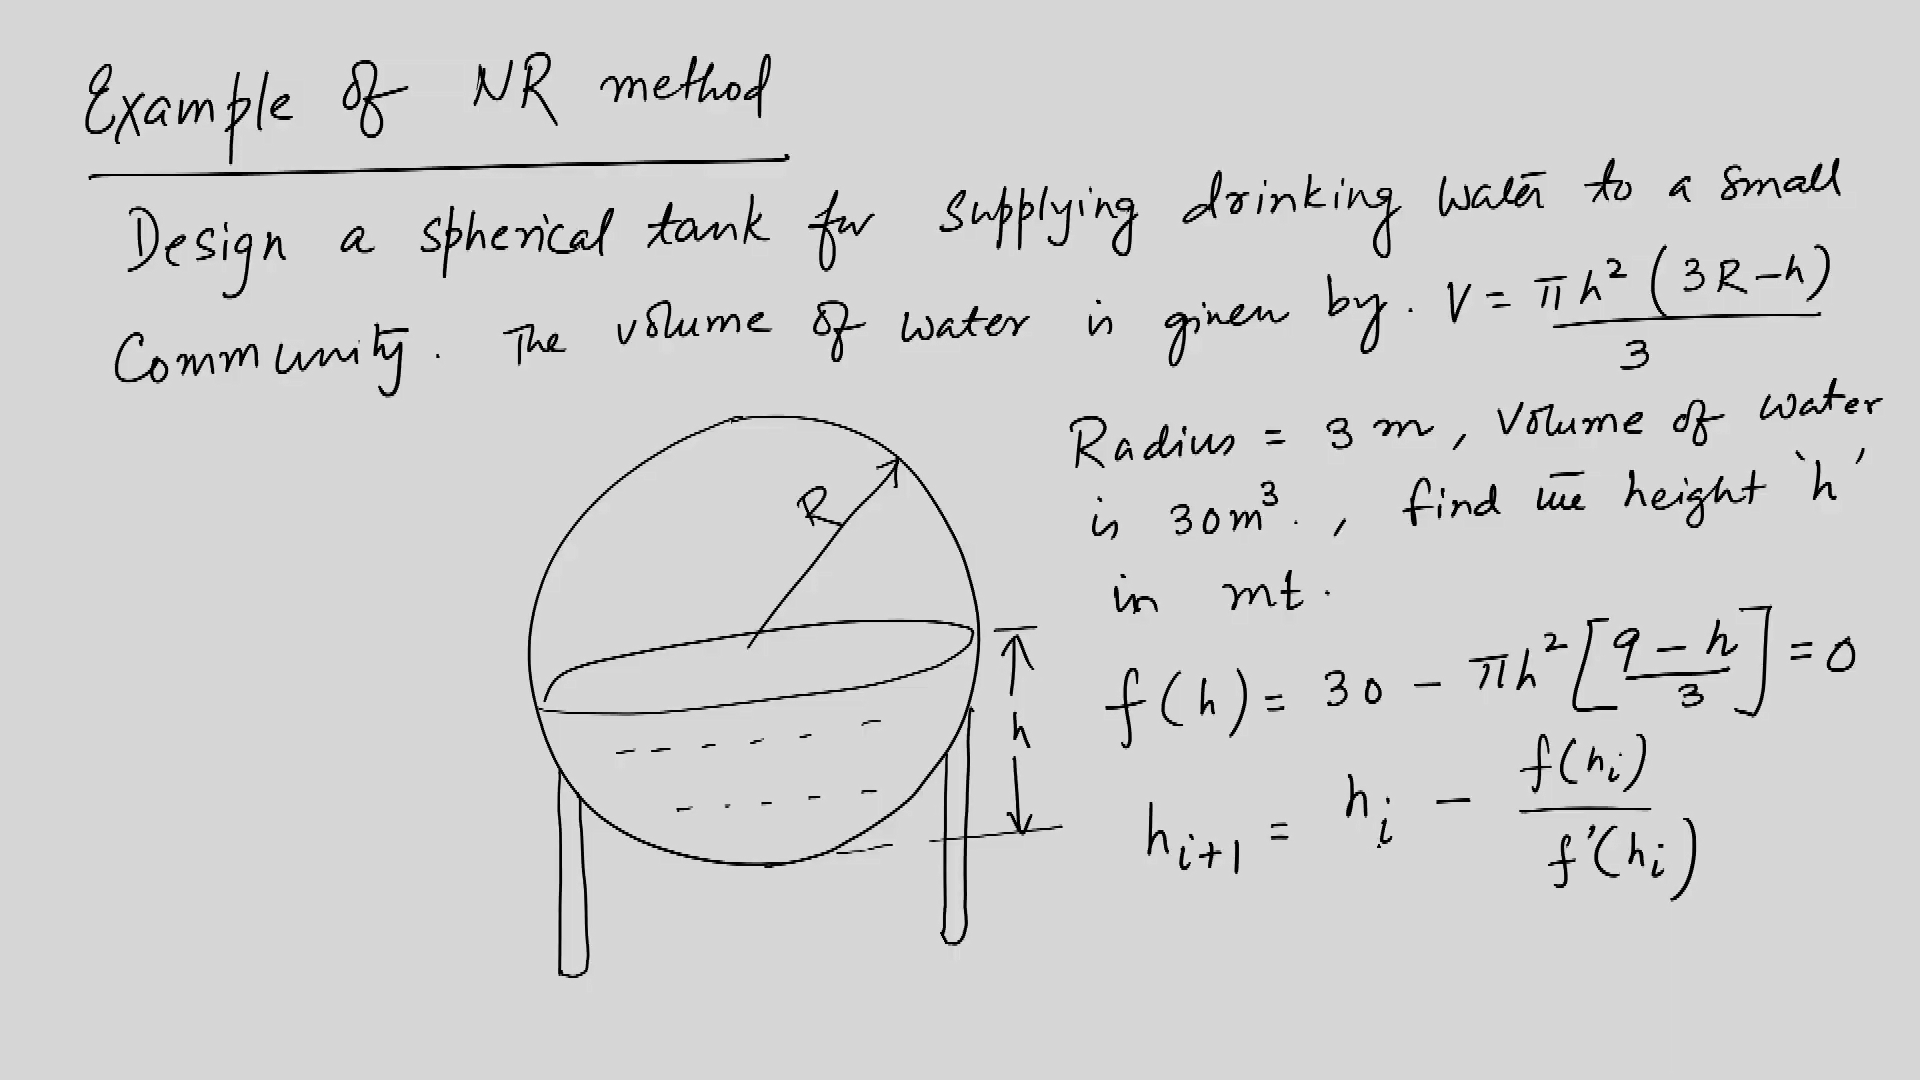 Example of NR method
Design a spherical tank for supplying drinking water to a small
Community. The volume of water is given by. V = πh² (3R-h) / 3
R
h
Radius = 3 m, Volume of water
is 30m³., find the height 'h'
in mt.
f(h) = 30 - πh² [9-h / 3] = 0
hᵢ₊₁ = hᵢ - f(hᵢ) / f'(hᵢ)